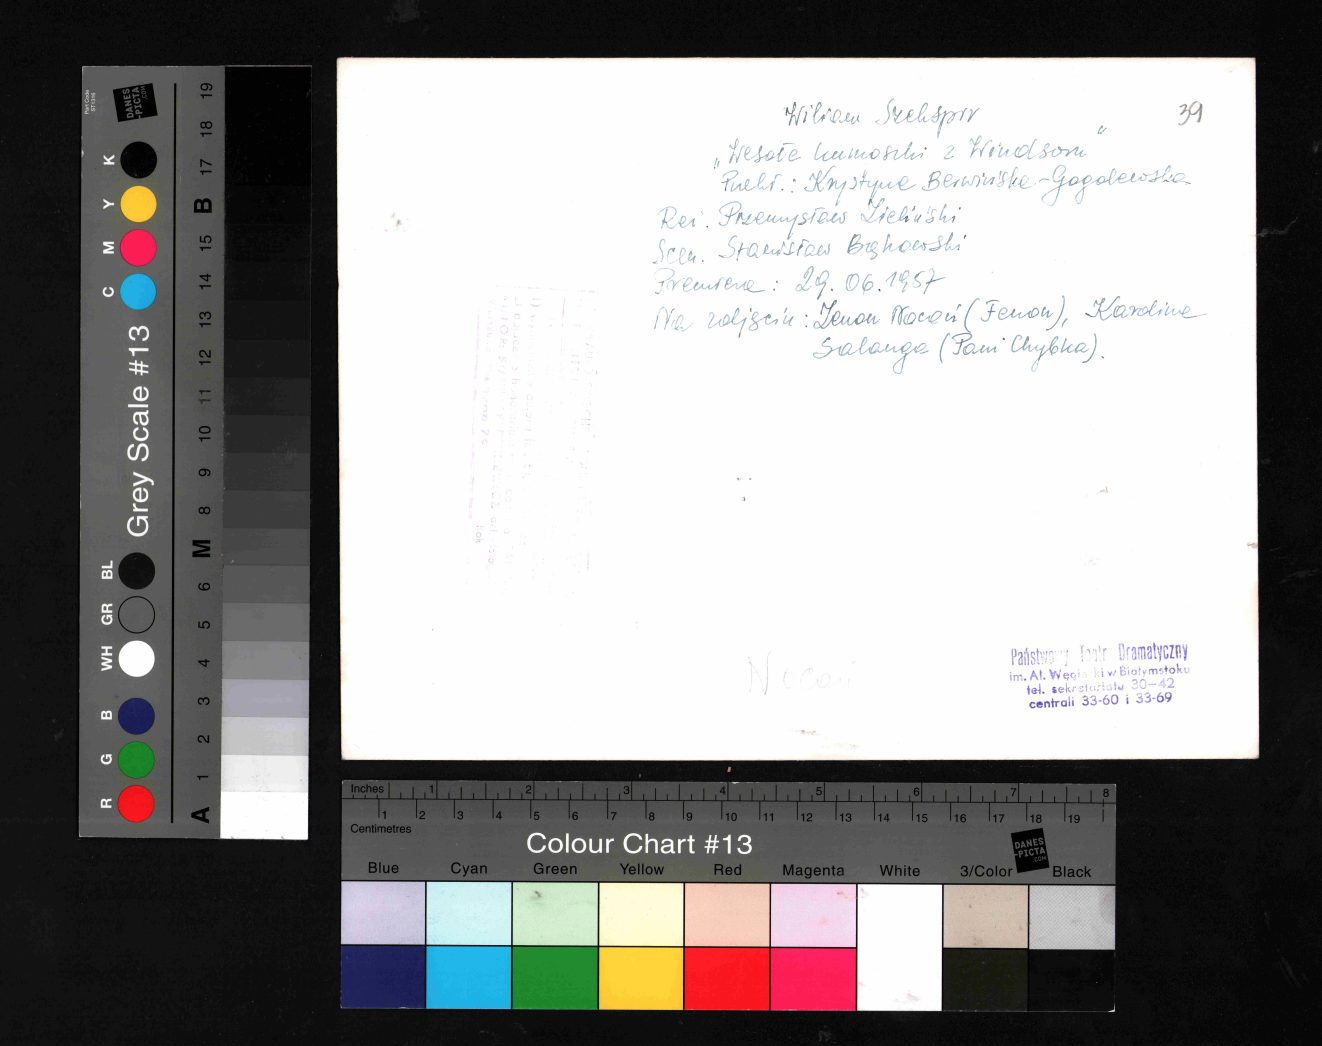 Wiliam Szekspir
39
„Wesołe kumoszki z Windsoru"
Przekł.: Krystyna Berwińska-Gogolewska
Reż. Przemysław Zieliński
Scen. Stanisław Bąkowski
Premiera: 29.06.1957
Na zdjęciu: Zenon Nocoń (Fenon), Karolina
Salanga (Pani Chybka).
Nocoń
Państwowy Teatr Dramatyczny
im. Al. Węgierki w Białymstoku
tel. sekretariatu 30-42
centrali 33-60 i 33-69
Part Code
ST1316
DANES
-PICTA
.COM
Grey Scale #13
R G B WH GR BL C M Y K
A 1 2 3 4 5 6 M 8 9 10 11 12 13 14 15 B 17 18 19
Inches 1 2 3 4 5 6 7 8
1 2 3 4 5 6 7 8 9 10 11 12 13 14 15 16 17 18 19
Centimetres
Colour Chart #13
DANES
-PICTA
.COM
Blue Cyan Green Yellow Red Magenta White 3/Color Black